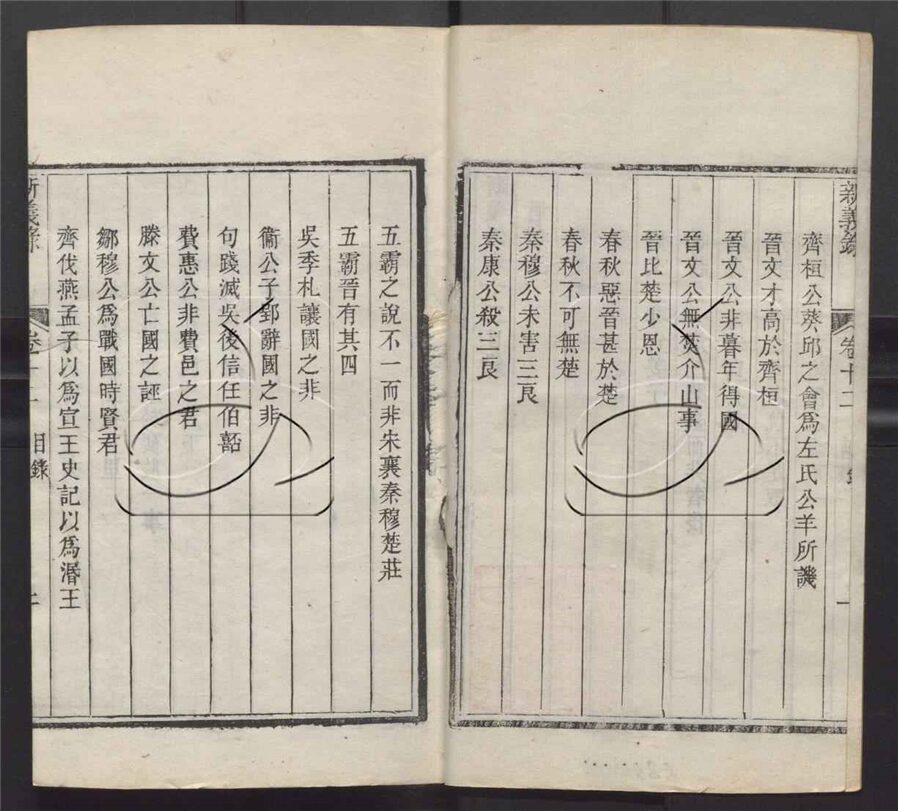 新義錄
卷十二
一
齊桓公葵邱之會爲左氏公羊所譏
晉文才高於齊桓
晉文公非暮年得國
晉文公無焚介山事
晉比楚少恩
春秋惡晉甚於楚
春秋不可無楚
秦穆公未害三良
秦康公殺三良
五霸之說不一而非朱襄秦穆楚莊
五霸晉有其四
吳季札讓國之非
衞公子郢辭國之非
句踐滅吳後信任伯嚭
費惠公非費邑之君
滕文公亡國之誣
鄒穆公爲戰國時賢君
齊伐燕孟子以爲宣王史記以爲湣王
新義錄
卷十二
目錄
二